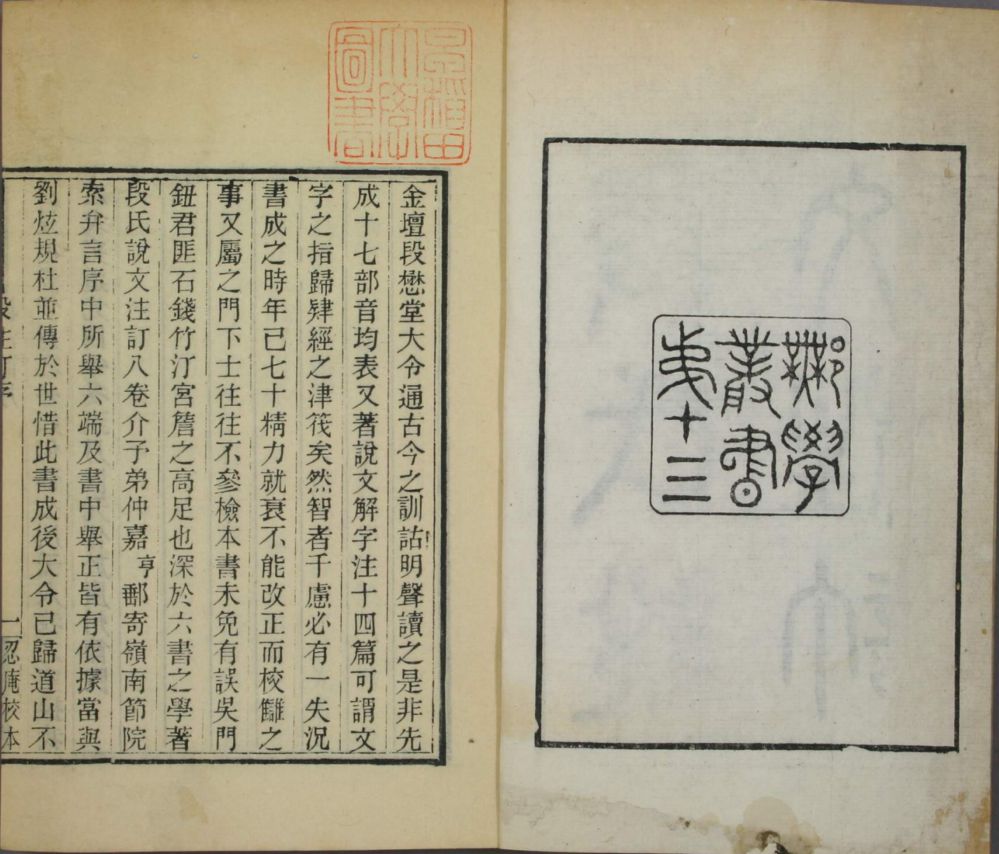 鄦學
叢書
弟十三
早稲田
大學
圖書
金壇段懋堂大令通古今之訓詁明聲讀之是非先
成十七部音均表又著說文解字注十四篇可謂文
字之指歸肄經之津筏矣然智者千慮必有一失況
書成之時年已七十精力就衰不能改正而校讎之
事又屬之門下士往往不參檢本書未免有誤吳門
鈕君匪石錢竹汀宮詹之高足也深於六書之學著
段氏說文注訂八卷介予弟仲嘉亨郵寄嶺南節院
索弁言序中所舉六端及書中舉正皆有依據當與
劉炫規杜並傳於世惜此書成後大令已歸道山不
段注訂序 一 庵校本